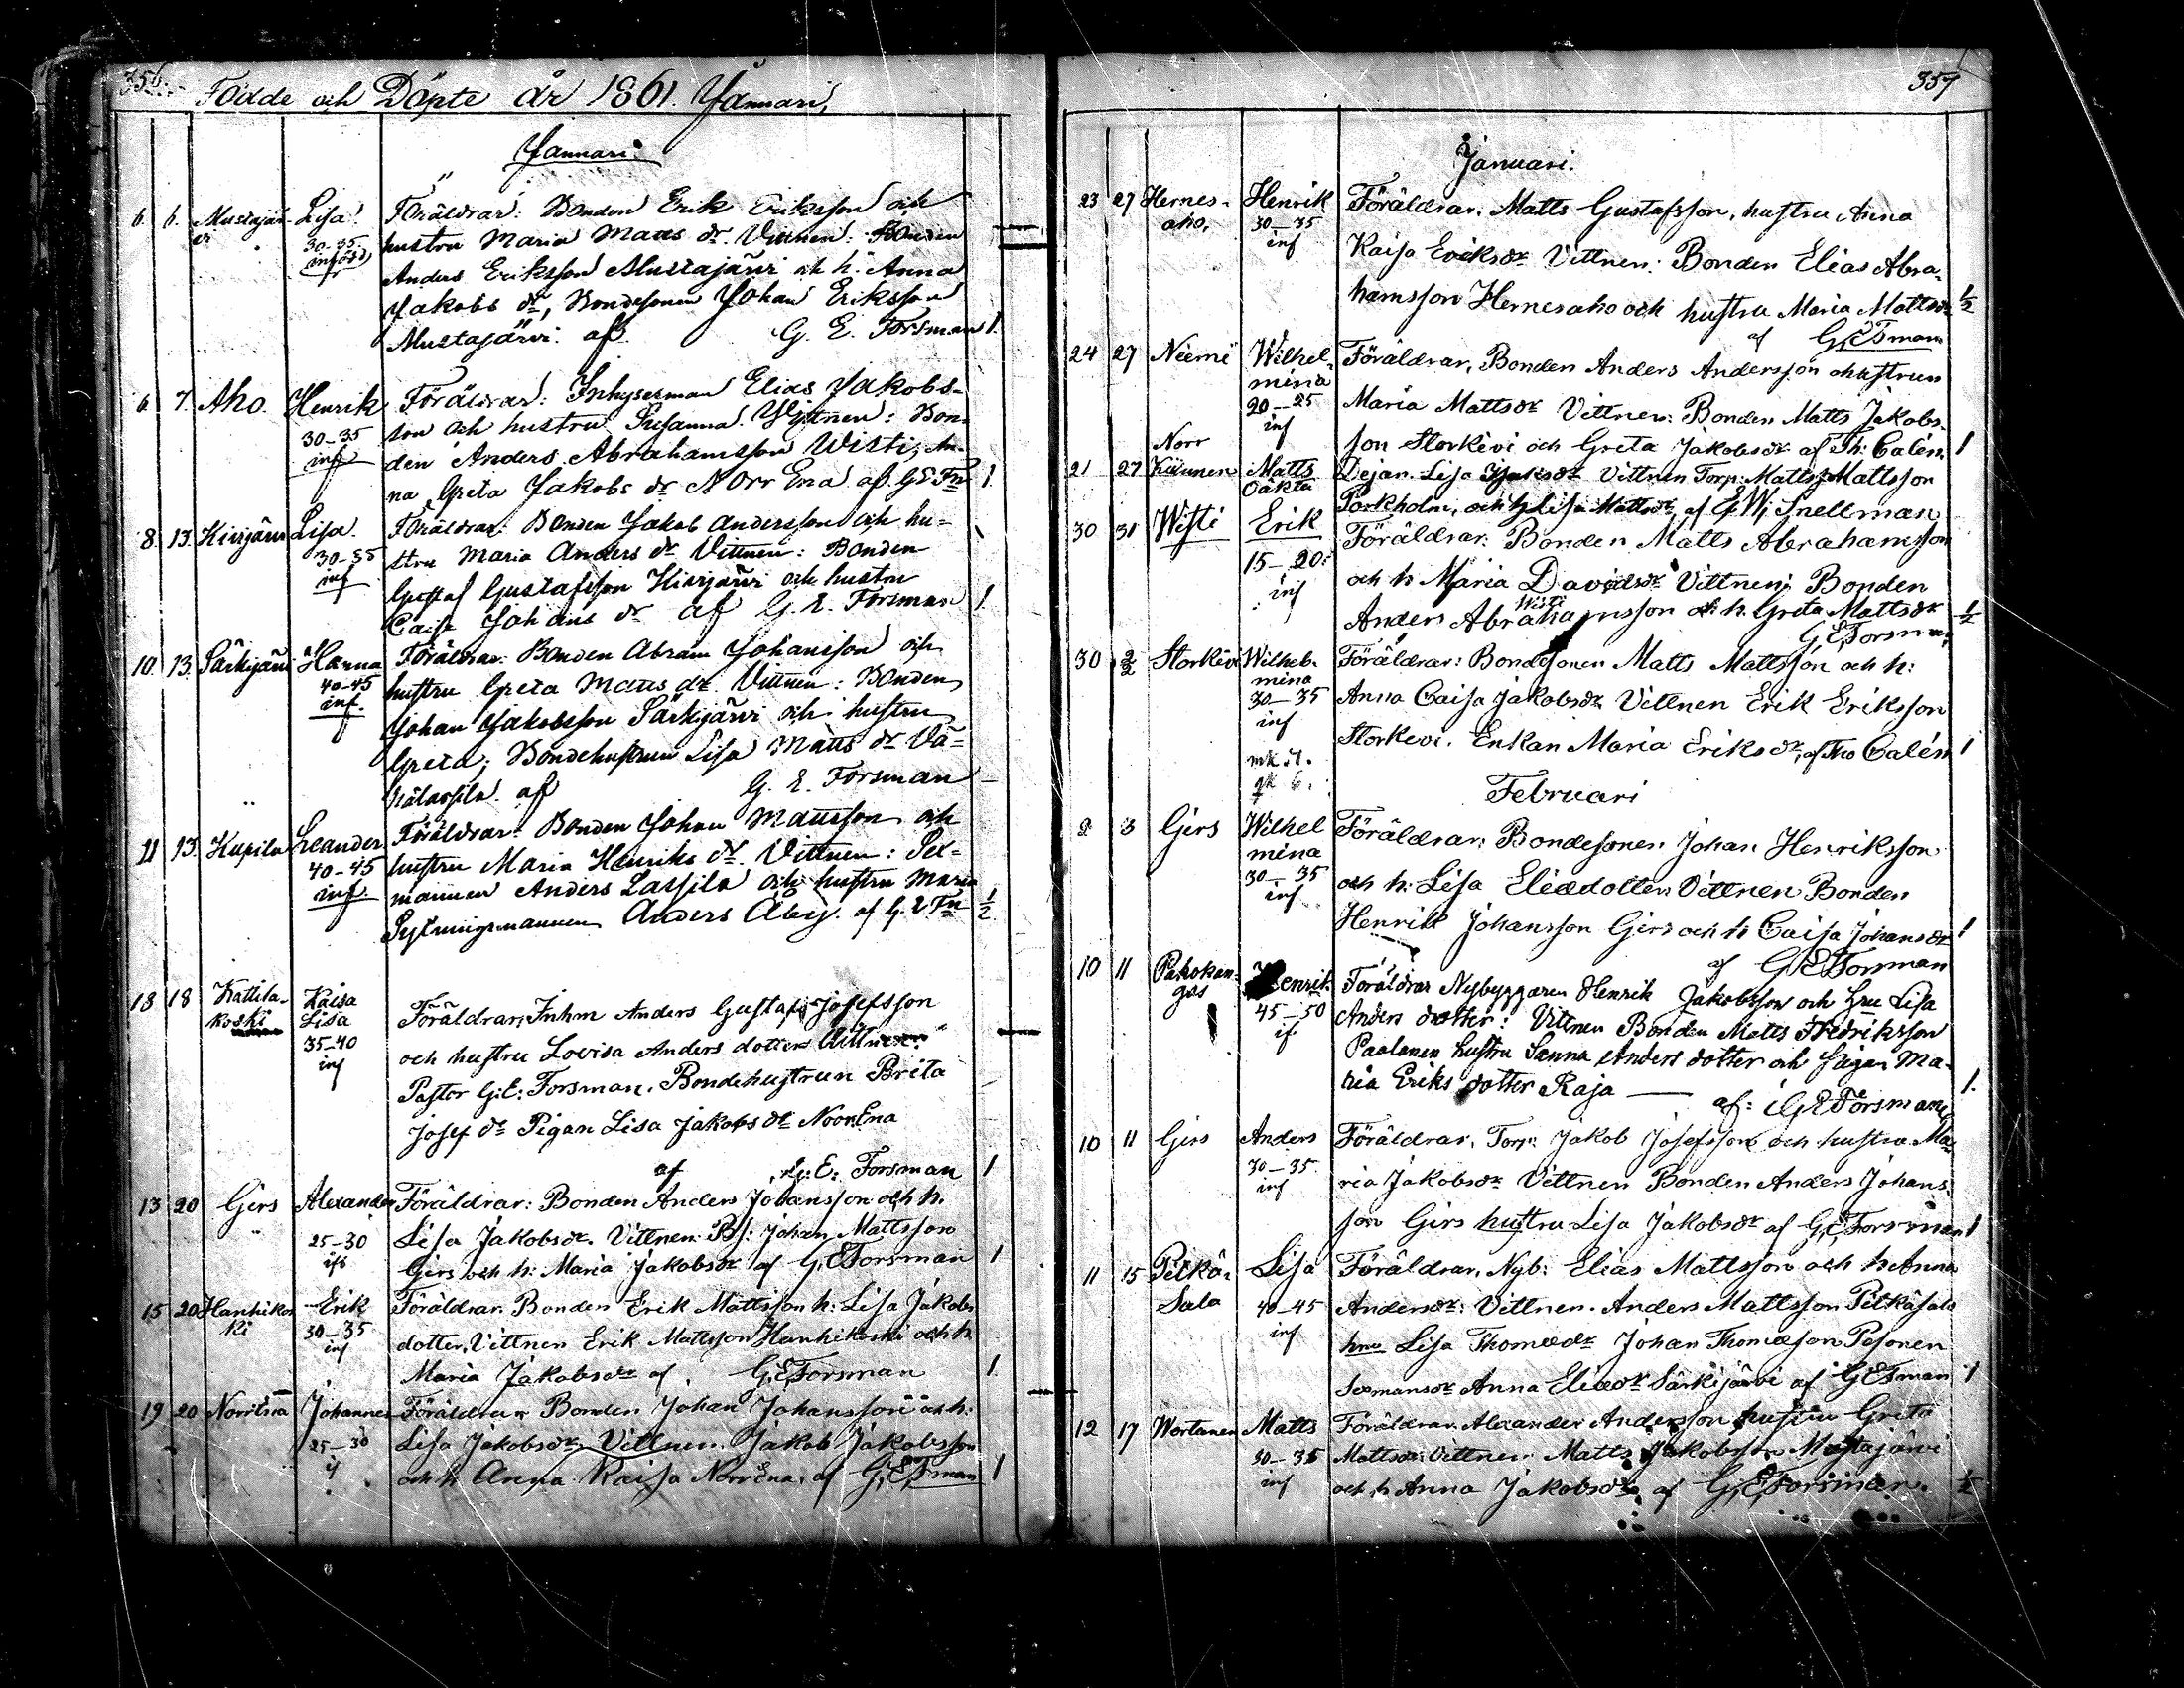 356.
Födde och Döpte år 1861. Januari,
Januari.
6. 6. Mustajär- Lisa. Föräldrar: Bonden Erik Eriksson och
vi 30-35. hustru Maria Matts dr. Vittnen: Bonden
inf Anders Eriksson Mustajärvi och h. Anna
Jakobs dr, Bondesonen Johan Eriksson
Mustajärvi. af G. E. Forsman 1.
6. 7. Aho. Henrik Föräldrar: Inhysesman Elias Jakobs-
30-35 son och hustru Susanna. Vittnen: Bon-
inf den Anders Abrahamsson Wisti, An-
na Greta Jakobs dr Norr Ena af G E Fn 1
8. 13. Kivijärvi Lisa. Föräldrar: Bonden Jakob Andersson och hu-
30-35 stru Maria Anders dr Vittnen: Bonden
inf Gustaf Gustafsson Kivijärvi och hustru
Caisa Johans dr af G. E. Forsman 1
10. 13. Särkijärvi Hanna Föräldrar: Bonden Abram Johansson och
40-45 hustru Greta Matts dr. Vittnen: Bonden
inf. Johan Jakobsson Särkijärvi och hustru
Greta; Bondehustrun Lisa Matts dr Vä-
hälassila. af G. E. Forsman
11 13. Kupila Leander Föräldrar: Bonden Johan Mattsson och
40-45 hustru Maria Henriks dr. Vittnen: Sex-
inf. mannen Anders Lassila och hustru Maria
Sytningsmannen Anders Åbij. af G. E Fn ½
18 18 Kattila- Kaisa
koski Lisa Föräldrar, Inhm Anders Gustaf Josefsson
35-40 och hustru Lovisa Anders dotter Vittnen:
inf Pastor G: E: Forsman. Bondehustrun Brita
Josef dr Pigan Lisa Jakobs dr NorrEna
af G: E: Forsman 1
13 20 Girs Alexander Föräldrar: Bonden Anders Johansson och h.
25-30 Lisa Jakobsdr. Vittnen: Bs: Johan Mattsson
Girs och h: Maria Jakobsdr af G. E Forsman 1
15 20 Hanhikos Erik Föräldrar. Bonden Erik Mattsson h: Lisa Jakobs
ki 30-35 dotter. Vittnen Erik Mattsson Hanhikoski och h.
inf Maria Jakobsdr af G. E Forsman 1.
19 20 NorrEna Johannes Föräldrar Bonden Johan Johansson och h:
25-30 Lisa Jakobsdr, Vittnen. Jakob Jakobsson
if och h Anna Kaisa NorrEna, af G, E, Fman 1
357
Januari.
23 27 Hernes- Henrik Föräldrar. Matts Gustafsson, hustru Anna
aho. 30-35 Kaisa Eriksdr Vittnen: Bonden Elias Abra-
inf hamsson Hernesaho och hustru Maria Mattsdr ½
af G, E Fman
24 27 Niemi Wilhel- Föräldrar, Bonden Anders Andersson o hustrun
mina Maria Mattsdr Vittnen: Bonden Matts Jakobs-
20-25 son Storkivi och Greta Jakobsdr af Th: Calén 1
inf
Norr
21 27 Kiiunen Matts Dejan. Lisa Vittnen Torp: Matts Mattsson
Oäkta Porkholm, och Lisa Mattsdr af E W, Snellman
30 31 Wisti Erik Föräldrar: Bonden Matts Abrahamsson
15-20: och h Maria Davidsdr Vittnen: Bonden
inf Anders Abrahamsson Wisti och h. Greta Mattsdr ½
G, E, Forsman
30 2/2 Storkivi Wilhel- Föräldrar: Bondsonen Matts Mattsson och h:
mina Anna Caisa Jakobsdr Vittnen Erik Eriksson
30-35 Storkevi. Enkan Maria Eriksdr, af Tho Calén 1
inf
mk 11.
qk 6.
Februari
2 3 Girs Wilhel Föräldrar: Bondesonen Johan Henriksson
mina och h: Lisa Eliædotter Vittnen Bonden
30-35 Henrik Johansson Girs och h Caisa Johansdr 1
inf af G E Forsman
10 11 Pahokan- Henrik Föräldrar Nybyggaren Henrik Jakobsson och hru Lisa
gas 45-50 Anders dotter: Vittnen Bonden Matts Fredriksson
if Paalanen hustru Sanna Anders dotter och pigan Ma-
ria Eriks dotter Raja — af: G E Forsman 1.
10 11 Girs Anders Föräldrar, Torp: Jakob Josefsson och hustru Ma-
30-35 ria Jakobsdr Vittnen Bonden Anders Johans-
inf son Girs hustru Lisa Jakobsdr af G, E Forsman 1
11 15 Pitkä- Lisa Föräldrar, Nyb: Elias Mattsson och h Anna
Salo 40-45 Andersdr: Vittnen. Anders Mattsson Pitkäsalo
inf hru Lisa Thomædr Johan Thomæson Pesonen
Sexmansdr Anna Eliædr Särkijärvi af G E Fman 1
12 17 Wortanen Matts Föräldrar. Alexander Andersson hustru Greta
30-35 Mattsdr: Vittnen Matts Jakobsson Mustajärvi
inf och h Anna Jakobsdr af G, E, Forsman. ½